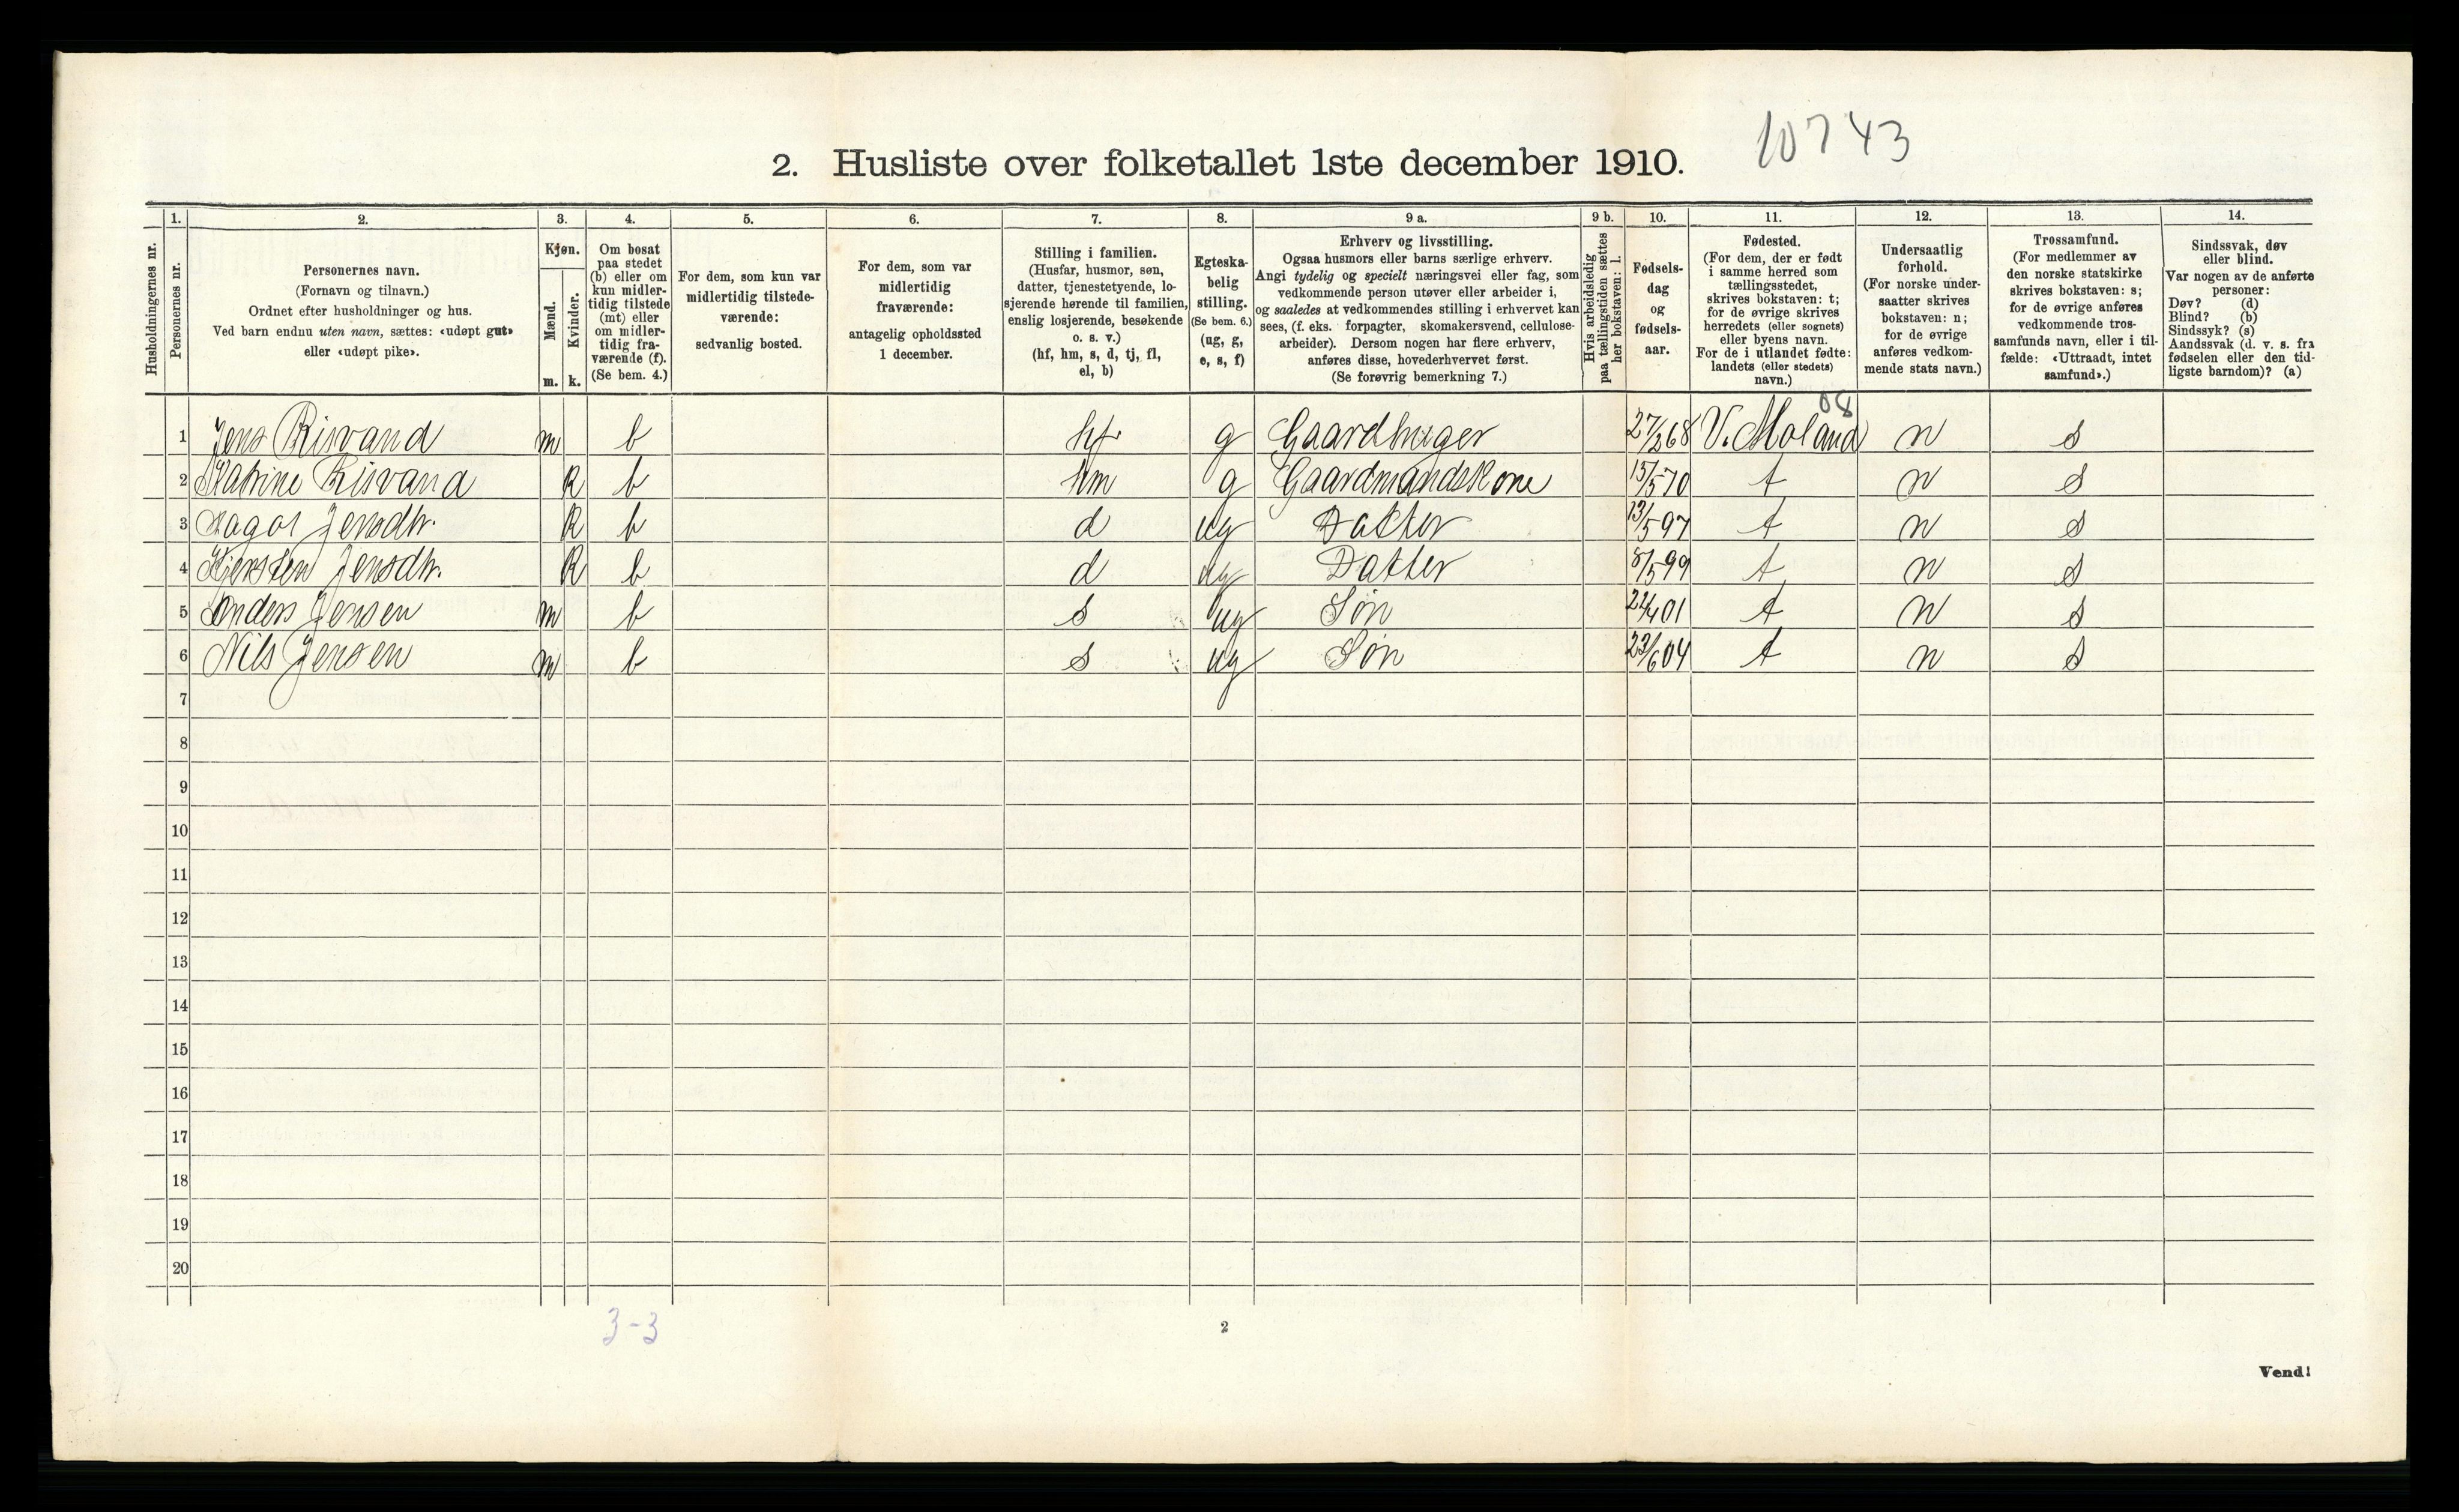 10743
2. Husliste over folketallet 1ste december 1910.
Husholdningernes nr.
1. Personernes nr.
2. Personernes navn.
(Fornavn og tilnavn.)
Ordnet efter husholdninger og hus.
Ved barn endnu uten navn, sættes: «udøpt gut»
eller «udøpt pike».
3. Kjøn.
Mænd. m.
Kvinder. k.
4. Om bosat
paa stedet
(b) eller om
kun midler-
tidig tilstede
(mt) eller
om midler-
tidig fra-
værende (f).
(Se bem. 4.)
5. For dem, som kun var
midlertidig tilstede-
værende:
sedvanlig bosted.
6. For dem, som var
midlertidig
fraværende:
antagelig opholdssted
1 december.
7. Stilling i familien.
(Husfar, husmor, søn,
datter, tjenestetyende, lo-
sjerende hørende til familien,
enslig losjerende, besøkende
o. s. v.)
(hf, hm, s, d, tj, fl,
el, b)
8. Egteska-
belig
stilling.
(Se bem. 6.)
(ug, g,
e, s, f)
9 a. Erhverv og livsstilling.
Ogsaa husmors eller barns særlige erhverv.
Angi tydelig og specielt næringsvei eller fag, som
vedkommende person utøver eller arbeider i,
og saaledes at vedkommendes stilling i erhvervet kan
sees, (f. eks. forpagter, skomakersvend, cellulose-
arbeider). Dersom nogen har flere erhverv,
anføres disse, hovederhvervet først.
(Se forøvrig bemerkning 7.)
9 b. Hvis arbeidsledig
paa tællingstiden sættes
her bokstaven: l.
10. Fødsels-
dag
og
fødsels-
aar.
11. Fødested.
(For dem, der er født
i samme herred som
tællingsstedet,
skrives bokstaven: t;
for de øvrige skrives
herredets (eller sognets)
eller byens navn.
For de i utlandet fødte:
landets (eller stedets)
navn.)
12. Undersaatlig
forhold.
(For norske under-
saatter skrives
bokstaven: n;
for de øvrige
anføres vedkom-
mende stats navn.)
13. Trossamfund.
(For medlemmer av
den norske statskirke
skrives bokstaven: s;
for de øvrige anføres
vedkommende tros-
samfunds navn, eller i til-
fælde: «Uttraadt, intet
samfund».)
14. Sindssvak, døv
eller blind.
Var nogen av de anførte
personer:
Døv? (d)
Blind? (b)
Sindssyk? (s)
Aandssvak (d. v. s. fra
fødselen eller den tid-
ligste barndom)? (a)
08
1 Jens Risvand m b hf g Gaardbruger 27/2 68 V. Moland n s
2 Katrine Risvand k b hm g Gaardmandskone 15/5 70 t n s
3 Aagot Jensdtr. k b d ug Datter 13/5 97 t n s
4 Kjersten Jensdtr. k b d ug Datter 8/5 99 t n s
5 Anders Jensen m b s ug Søn 22/4 01 t n s
6 Nils Jensen m b s ug Søn 23/6 04 t n s
7
8
9
10
11
12
13
14
15
16
17
18
19
20
3-3
2
Vend!